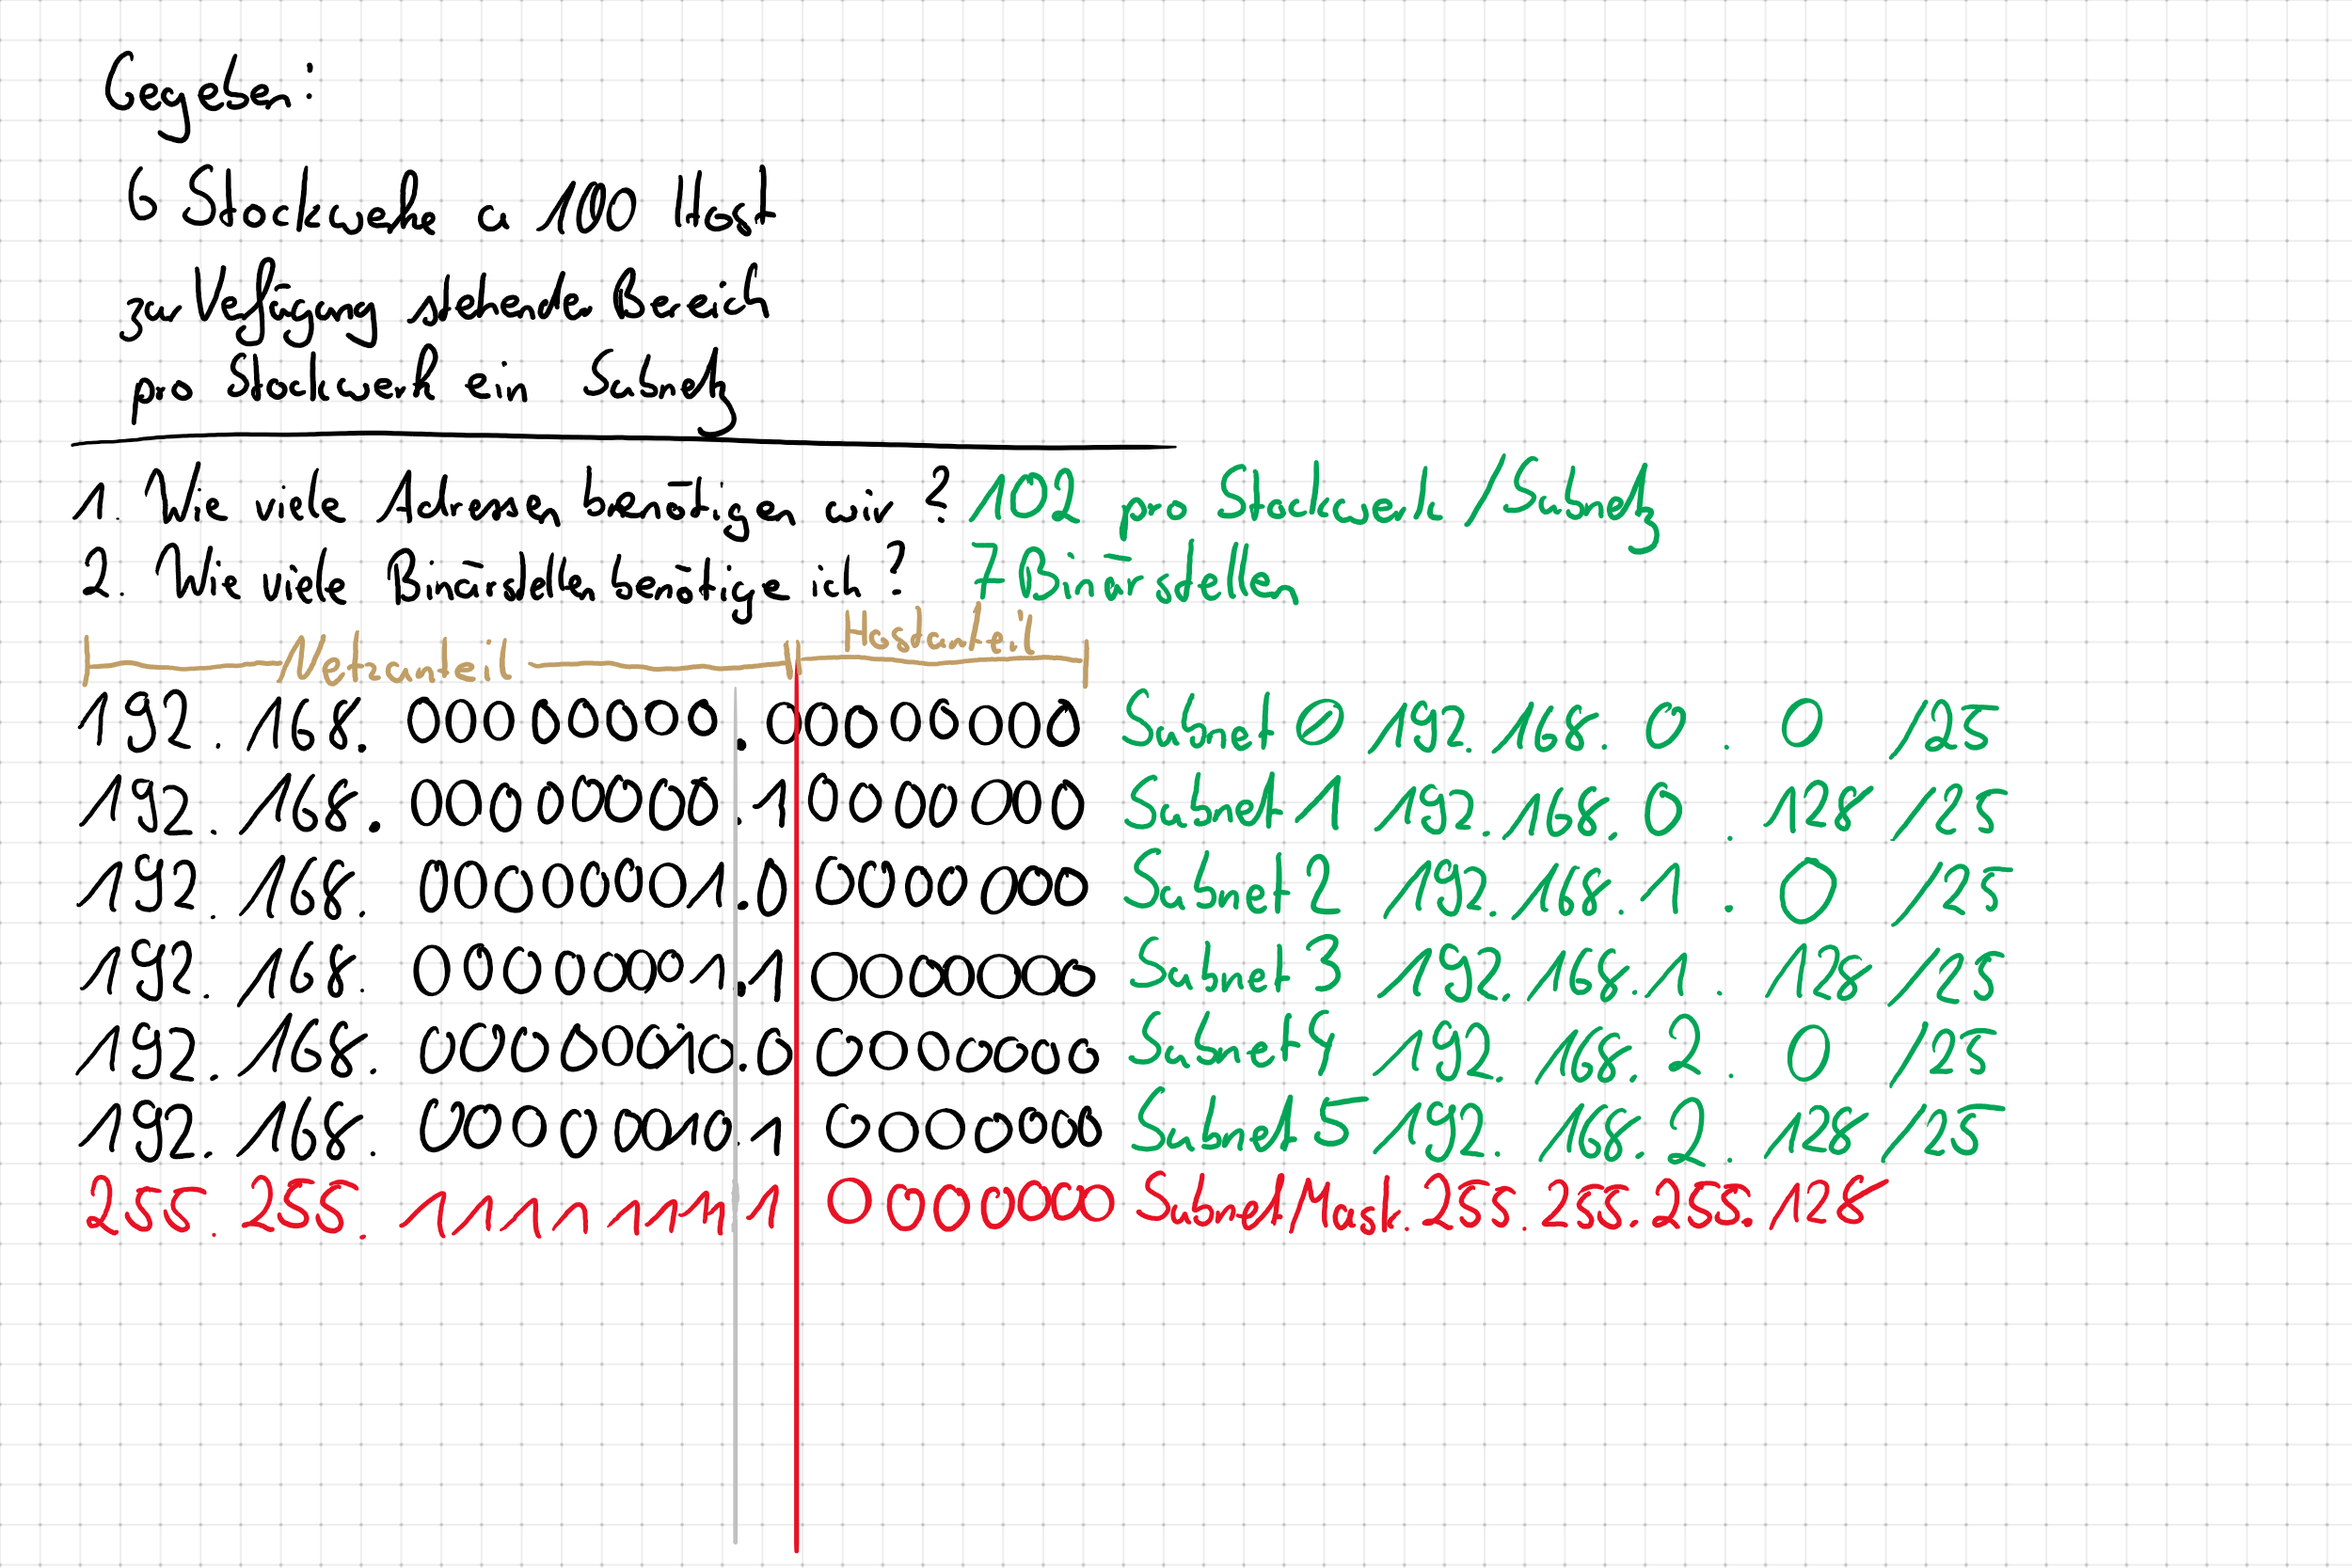 Gegeben:
6 Stockwerke a 100 Host
zur Verfügung stehender Bereich
pro Stockwerk ein Subnetz
1. Wie viele Adressen benötigen wir? 102 pro Stockwerk/Subnetz
2. Wie viele Binärstellen benötige ich? 7 Binärstellen
Netzanteil Hostanteil
192.168.00000000.00000000 Subnet 0 192.168.0.0 /25
192.168.00000000.10000000 Subnet 1 192.168.0.128 /25
192.168.00000001.00000000 Subnet 2 192.168.1.0 /25
192.168.00000001.10000000 Subnet 3 192.168.1.128 /25
192.168.00000010.00000000 Subnet 4 192.168.2.0 /25
192.168.00000010.10000000 Subnet 5 192.168.2.128 /25
255.255.11111111.10000000 Subnet Mask. 255.255.255.128